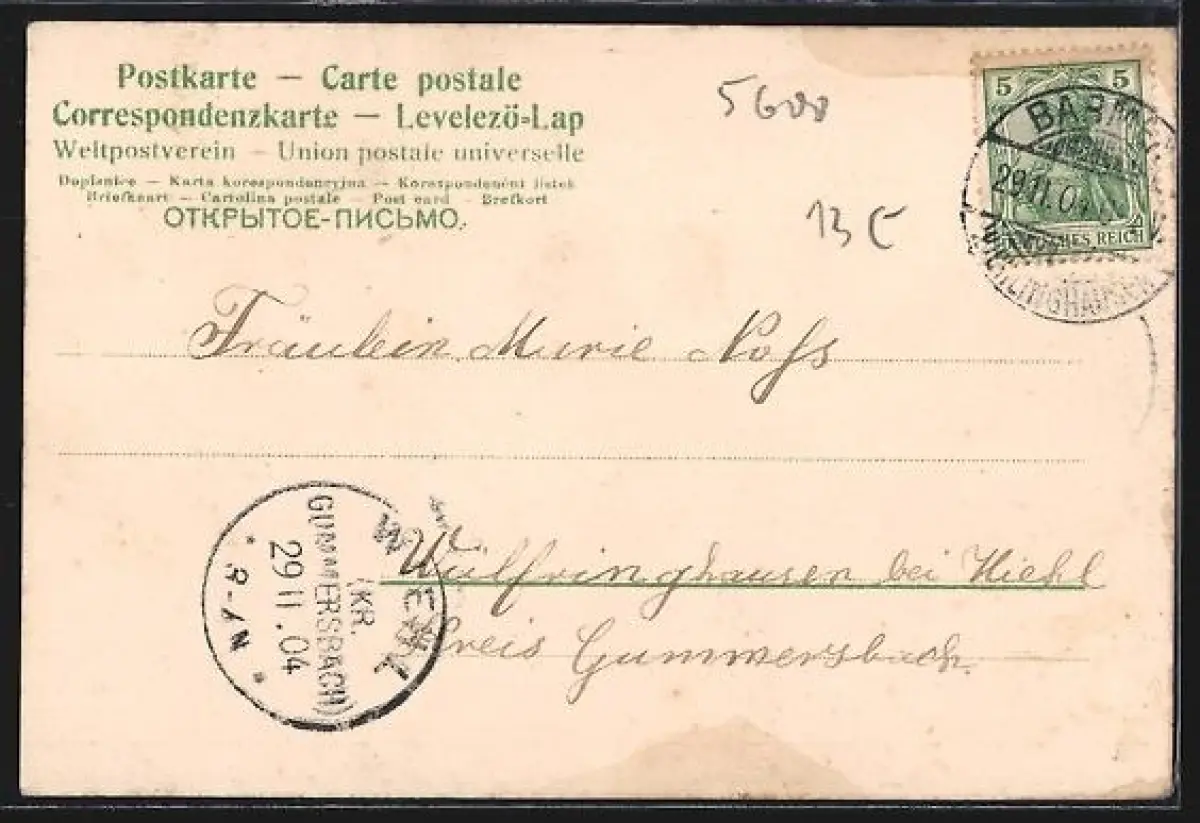 Postkarte — Carte postale
Correspondenzkarte — Levelező-Lap
Weltpostverein — Union postale universelle
Dopisnice — Karta korespondencyjna — Korespondenční lístek
Briefkaart — Cartolina postale — Post card — Brefkort
ОТКРЫТОЕ-ПИСЬМО.
5600
13 E
5 5
DEUTSCHES REICH
BARMEN
29.11.04
WICHLINGHAUSEN
Fräulein Marie Noss
Wülfringhausen bei Wiehl
Kreis Gummersbach
WIEHL
(KR.
GUMMERSBACH)
29 11.04